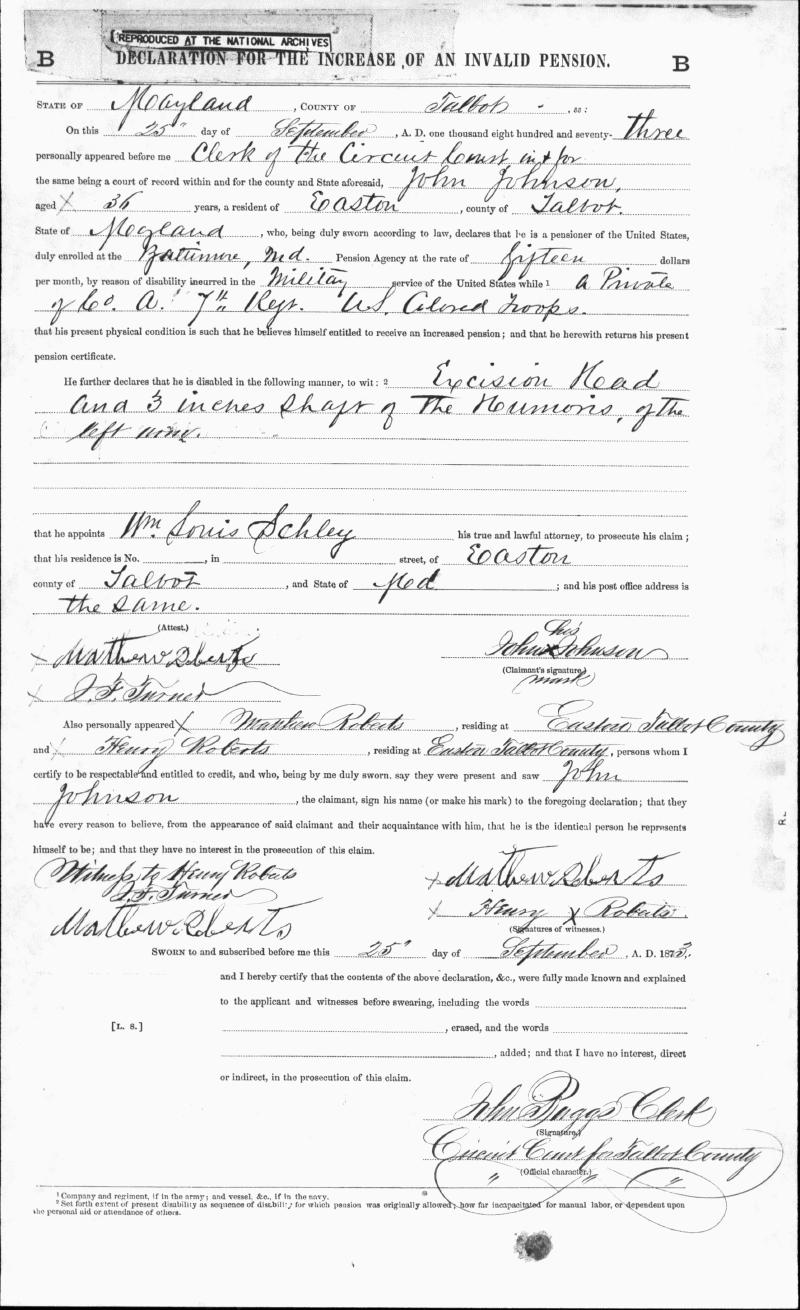 REPRODUCED AT THE NATIONAL ARCHIVES
B DECLARATION FOR THE INCREASE OF AN INVALID PENSION. B
STATE OF Mayland, COUNTY OF Talbot, ss:
On this 25" day of September, A. D. one thousand eight hundred and seventy- three
personally appeared before me Clerk of the Circuit Court in & for
the same being a court of record within and for the county and State aforesaid, John Johnson,
aged X 36 years, a resident of Easton, county of Talbot.
State of Mayland, who, being duly sworn according to law, declares that he is a pensioner of the United States,
duly enrolled at the Baltimore, Md. Pension Agency at the rate of fifteen dollars
per month, by reason of disability incurred in the Military service of the United States while 1 a Private
of Co. A. 7th Regt. U.S. Colored Troops.
that his present physical condition is such that he believes himself entitled to receive an increased pension; and that he herewith returns his present
pension certificate.
He further declares that he is disabled in the following manner, to wit: 2 Excision Head
and 3 inches Shaft of The Humoris, of the
left arm.
that he appoints Wm. Louis Schley his true and lawful attorney, to prosecute his claim;
that his residence is No. , in street, of Easton
county of Talbot, and State of Md; and his post office address is
the same.
(Attest.)
X Mathew Roberts John X Johnson his
(Claimant's signature.)
X J. F. Turner mark
Also personally appeared X Matthew Roberts, residing at Easton Talbot County
and X Henry Roberts, residing at Easton Talbot County, persons whom I
certify to be respectable and entitled to credit, and who, being by me duly sworn, say they were present and saw John
Johnson, the claimant, sign his name (or make his mark) to the foregoing declaration; that they
have every reason to believe, from the appearance of said claimant and their acquaintance with him, that he is the identical person he represents
himself to be; and that they have no interest in the prosecution of this claim.
Witness to Henry Roberts
J. F. Turner X Mathew Roberts
Mathew Roberts X Henry X Roberts.
(Signatures of witnesses.)
SWORN to and subscribed before me this 25" day of September, A. D. 1873.
and I hereby certify that the contents of the above declaration, &c., were fully made known and explained
to the applicant and witnesses before swearing, including the words
[L. S.] , erased, and the words
, added; and that I have no interest, direct
or indirect, in the prosecution of this claim.
John Baggs Clerk
(Signature.)
Circuit Court for Talbot County
(Official character.)
" " "
1 Company and regiment, if in the army; and vessel, &c., if in the navy.
2 Set forth extent of present disability as sequence of disability for which pension was originally allowed; how far incapacitated for manual labor, or dependent upon
the personal aid or attendance of others.